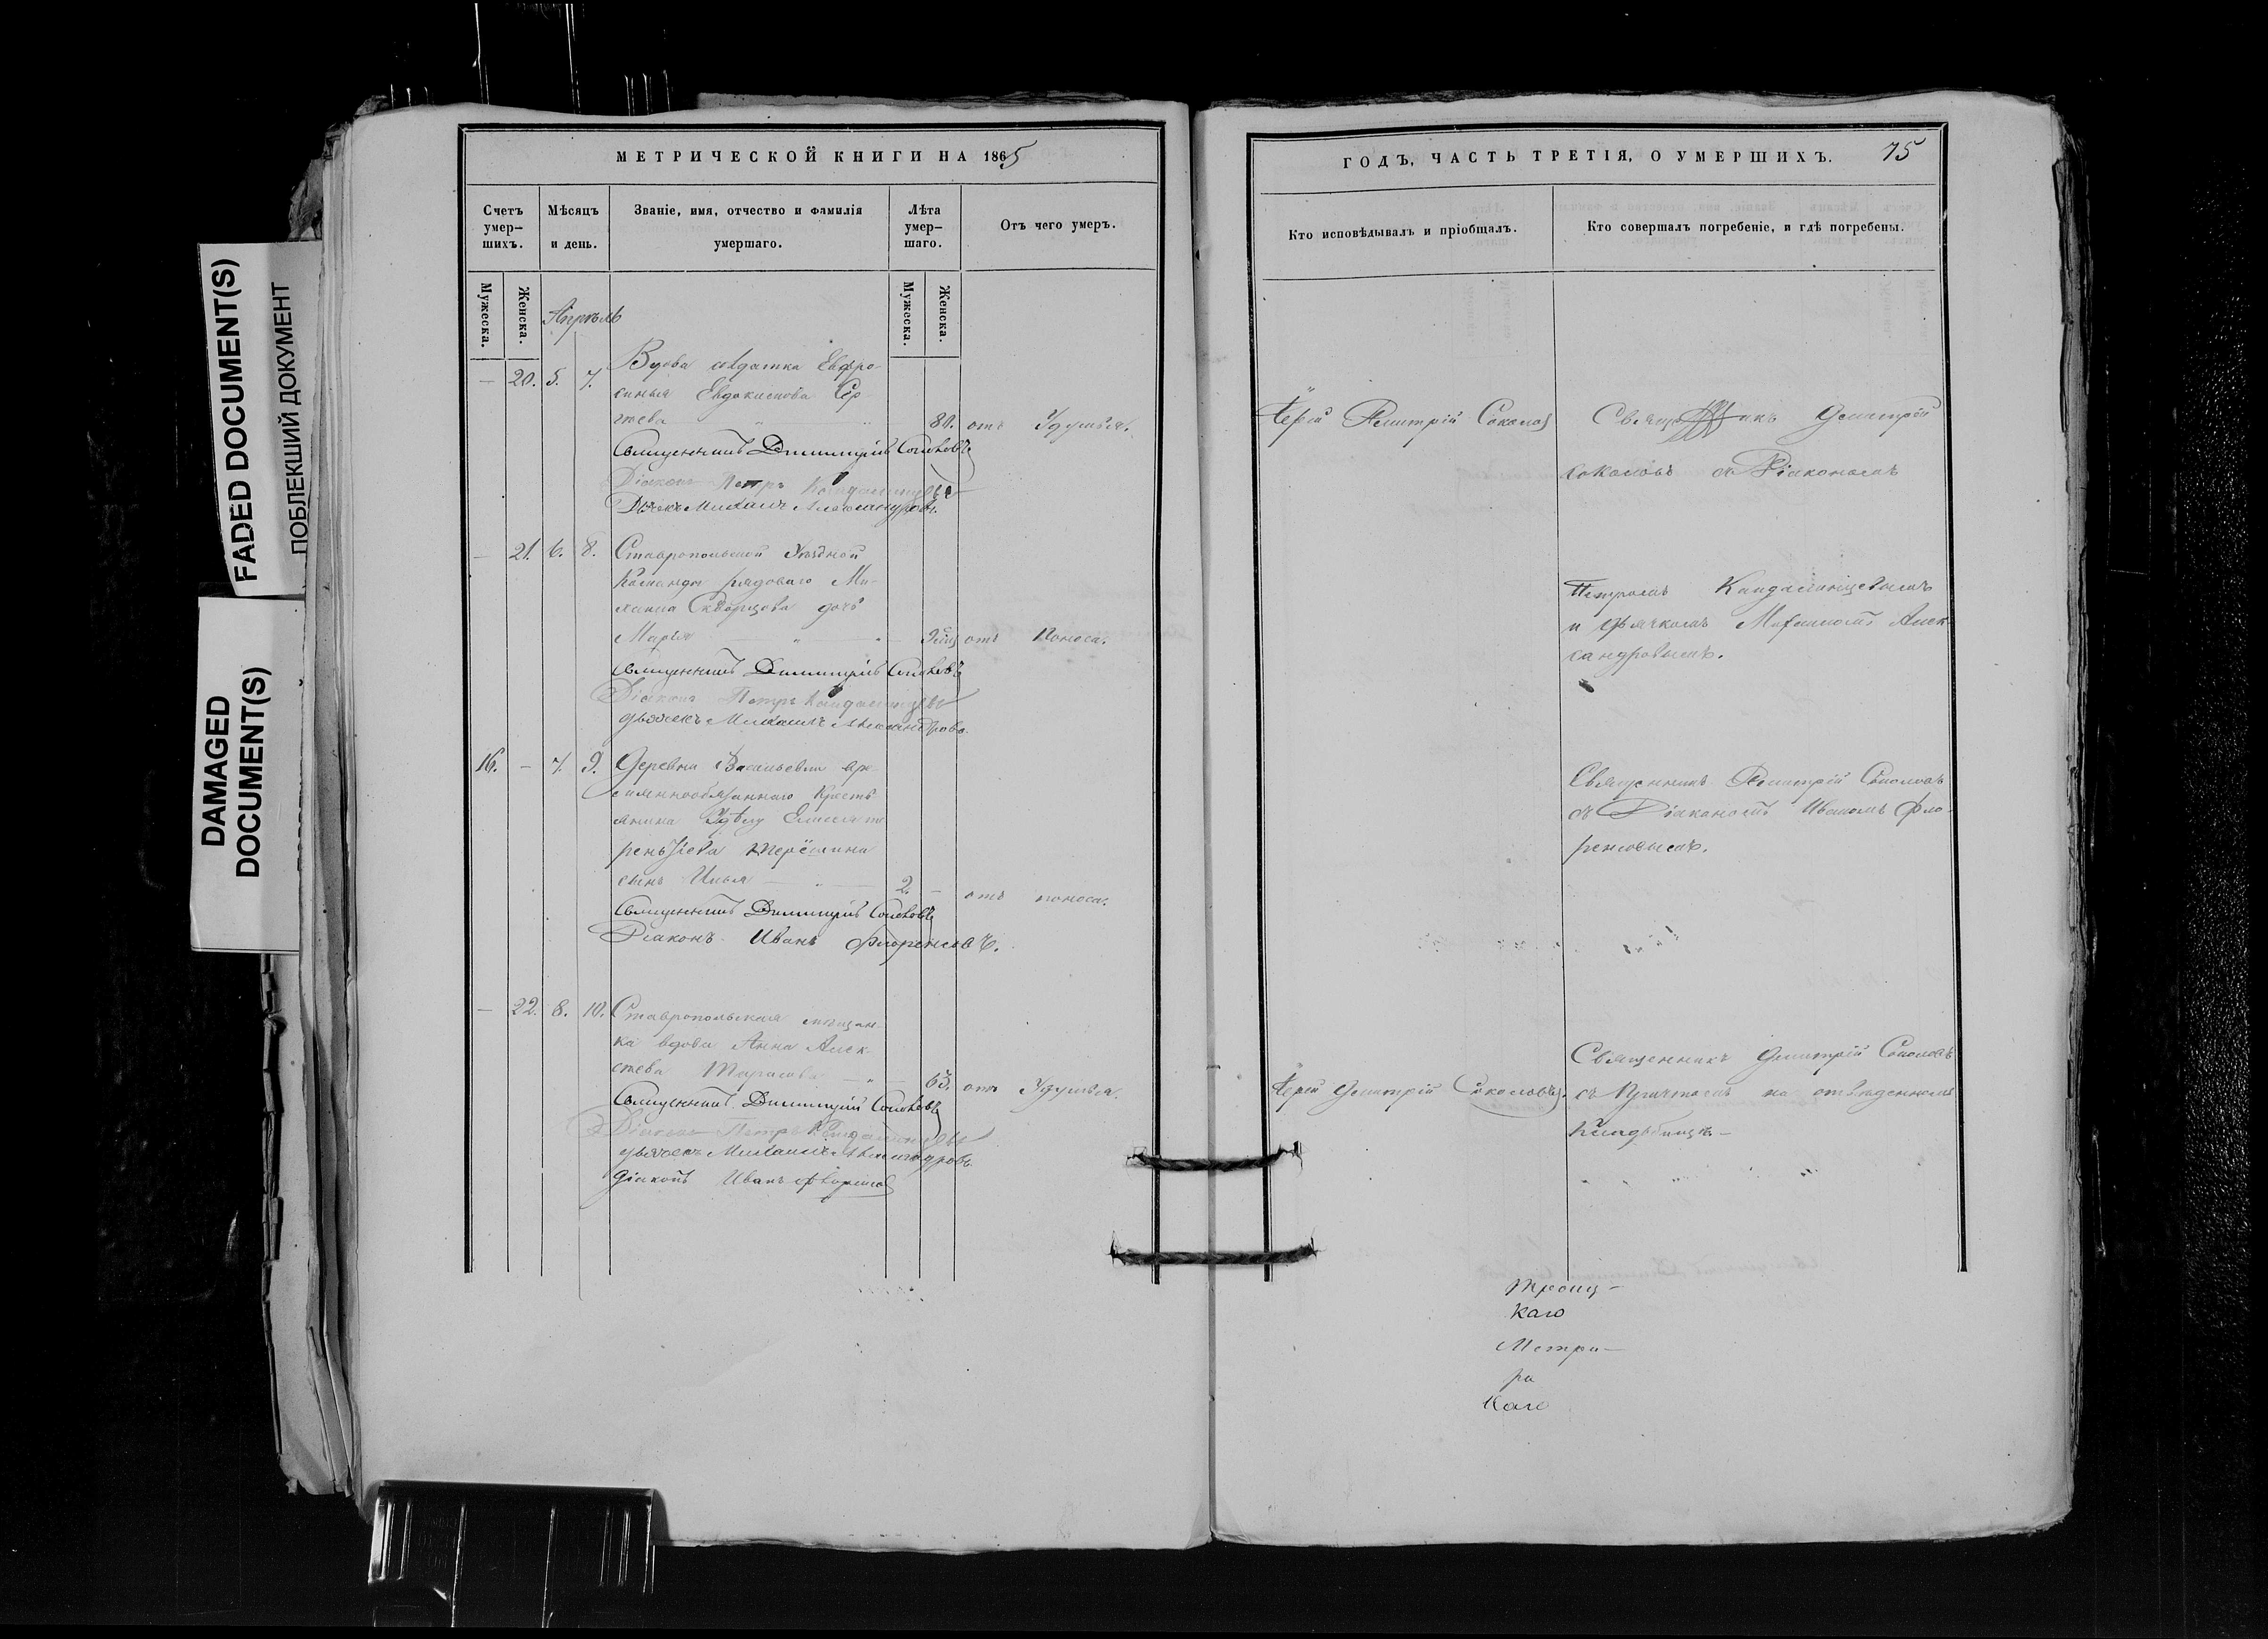 FADED DOCUMENT(S)
ПОБЛЕКШИЙ ДОКУМЕНТ
DAMAGED
DOCUMENT(S)
МЕТРИЧЕСКОЙ КНИГИ НА 1865
Счетъ умер-шихъ.
Мѣсяцъ и день.
Званіе, имя, отчество и фамилія умершаго.
Лѣта умер-шаго.
Отъ чего умеръ.
Мужеска.
Женска.
Мужеска.
Женска.
Апрѣль
— 20. 5. 7. Вдова солдатка Евфро-
синья Евдокимова Сер-
гѣева 80. отъ Удушья.
Священникъ Димитрій Соколовъ
Діаконъ Петръ Кандалинцевъ
Дьячекъ Михаилъ Александровъ.
— 21. 6. 8. Ставропольской Уѣздной
Команды рядоваго Ми-
хаила Скворцова дочь
Марья отъ Поноса.
Священникъ Димитрій Соколовъ
Діаконъ Петръ Кандалинцевъ
Дьячекъ Михаилъ Александровъ.
16. — 7. 9. Деревни Васильевки вре-
меннообязаннаго кресть-
янина
сынъ Илья 2. — отъ поноса.
Священникъ Димитрій Соколовъ
Діаконъ Иванъ Флоренсовъ.
— 22. 8. 10. Ставропольская мѣщан-
ка вдова Анна Алек-
сѣева Тарасова 63. отъ Удушья.
Священникъ Димитрій Соколовъ
Діаконъ Петръ Кандалинцевъ
дьячекъ Михаилъ Александровъ
Діаконъ Иванъ Флоренсовъ
ГОДЪ, ЧАСТЬ ТРЕТІЯ, О УМЕРШИХЪ. 75
Кто исповѣдывалъ и пріобщалъ.
Кто совершалъ погребеніе, и гдѣ погребены.
Іерей Димитрій Соколовъ
Димитрій
Соколовъ съ Діакономъ
Петромъ Кандалинцевымъ
и дьячкомъ Михаиломъ Алек-
сандровымъ.
Священникъ Димитрій Соколовъ
съ Діакономъ Иваномъ Фло-
ренсовымъ.
Іерей Димитрій Соколовъ.
Священникъ Димитрій Соколовъ
съ Причтомъ на отведенномъ
Кладбищѣ —
Троиц-
каго